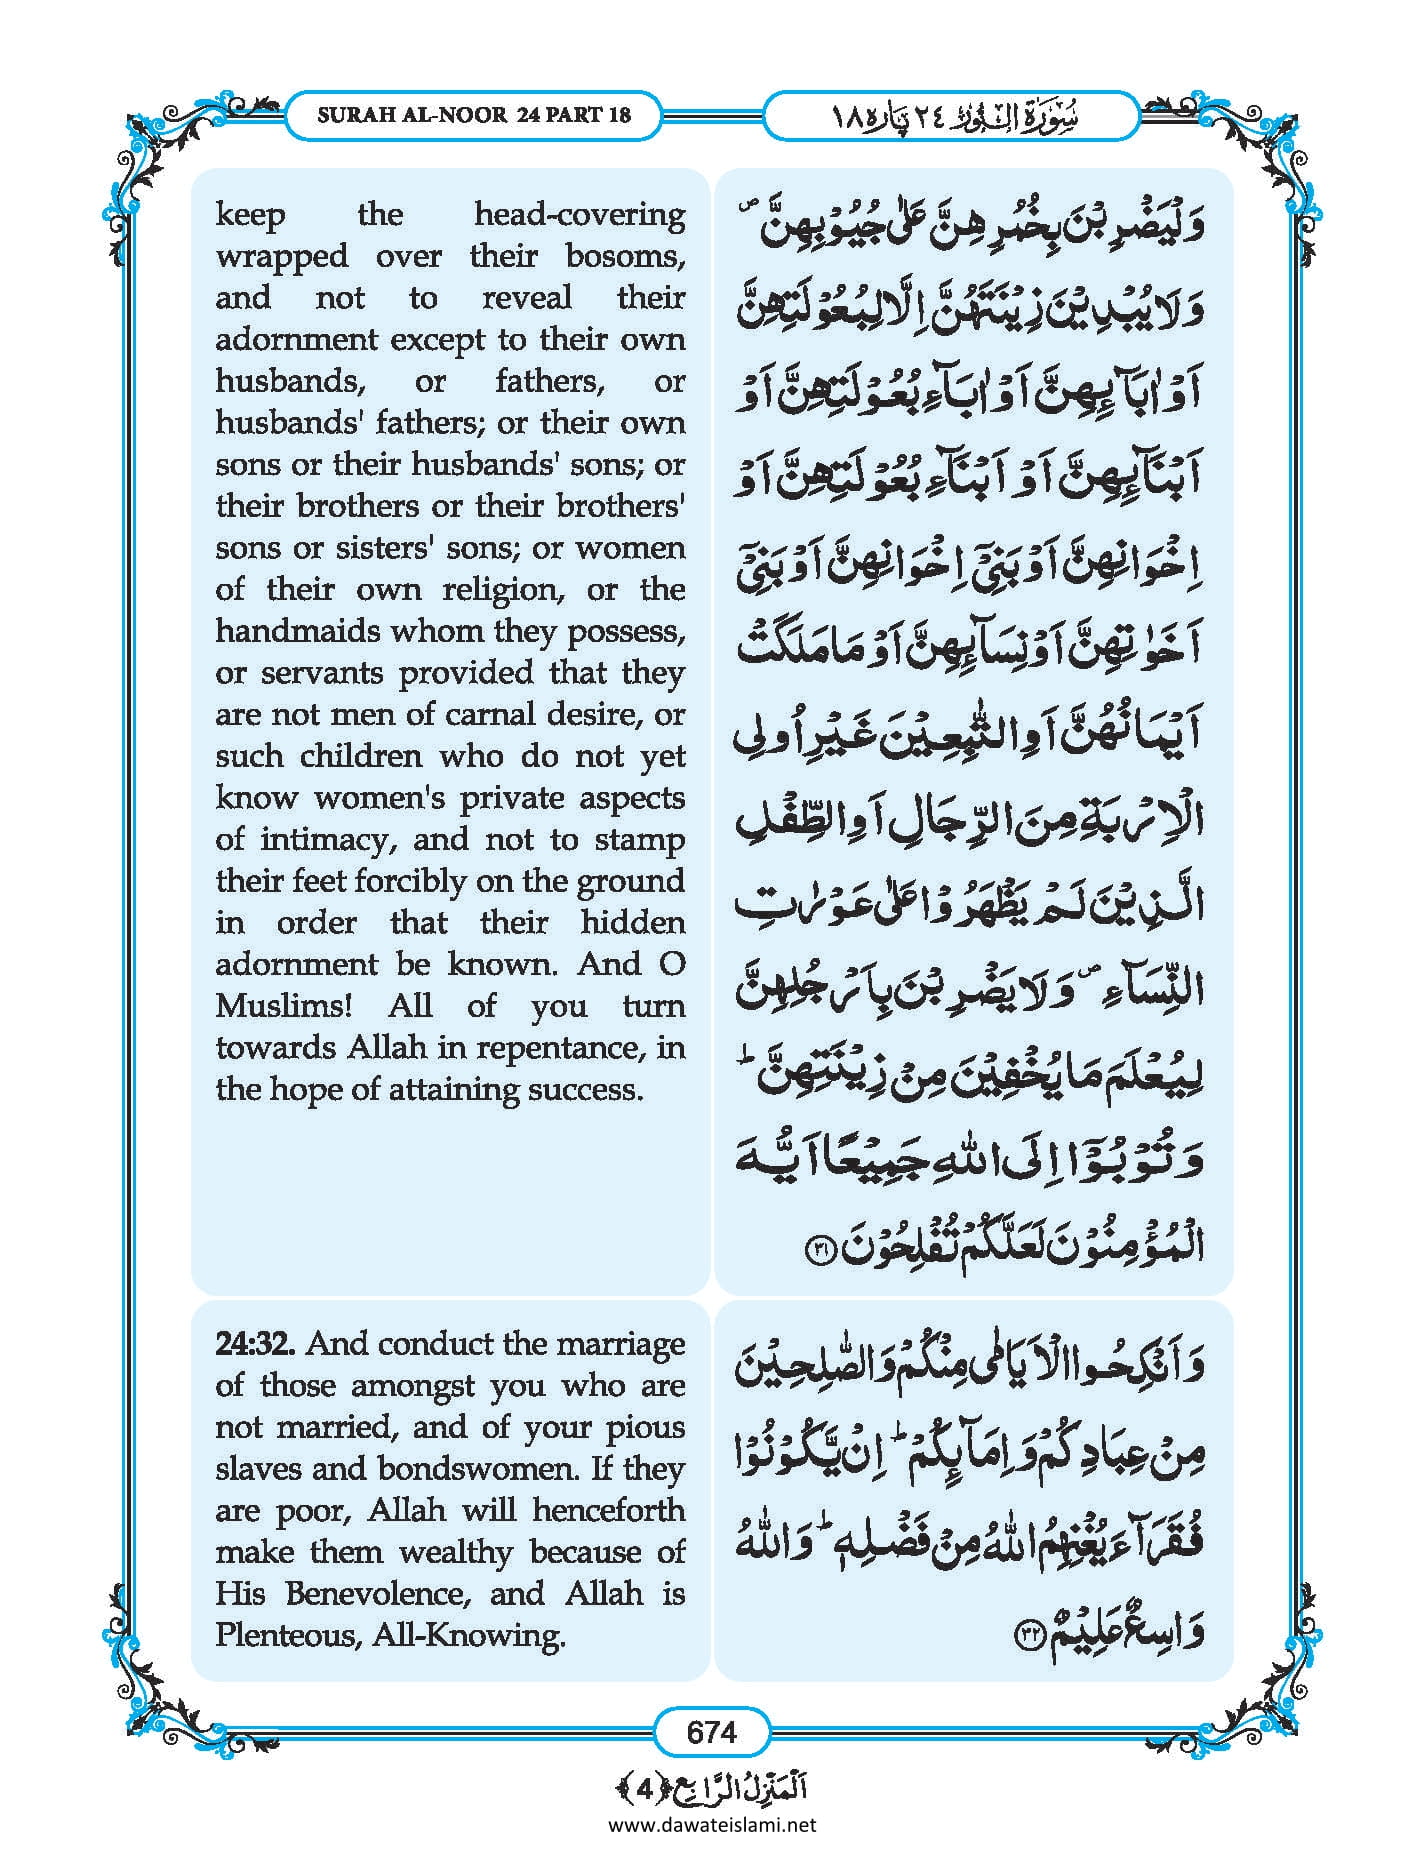 SURAH AL-NOOR 24 PART 18
سُوْرَةُ النُّوْر ٢٤ پارہ ١٨
keep the head-covering
wrapped over their bosoms,
and not to reveal their
adornment except to their own
husbands, or fathers, or
husbands' fathers; or their own
sons or their husbands' sons; or
their brothers or their brothers'
sons or sisters' sons; or women
of their own religion, or the
handmaids whom they possess,
or servants provided that they
are not men of carnal desire, or
such children who do not yet
know women's private aspects
of intimacy, and not to stamp
their feet forcibly on the ground
in order that their hidden
adornment be known. And O
Muslims! All of you turn
towards Allah in repentance, in
the hope of attaining success.
وَلْيَضْرِبْنَ بِخُمُرِهِنَّ عَلٰى جُيُوْبِهِنَّ ۪
وَلَا يُبْدِيْنَ زِيْنَتَهُنَّ اِلَّا لِبُعُوْلَتِهِنَّ
اَوْ اٰبَآئِهِنَّ اَوْ اٰبَآءِ بُعُوْلَتِهِنَّ اَوْ
اَبْنَآئِهِنَّ اَوْ اَبْنَآءِ بُعُوْلَتِهِنَّ اَوْ
اِخْوَانِهِنَّ اَوْ بَنِيْۤ اِخْوَانِهِنَّ اَوْ بَنِيْۤ
اَخَوٰتِهِنَّ اَوْ نِسَآئِهِنَّ اَوْ مَا مَلَكَتْ
اَيْمَانُهُنَّ اَوِ التّٰبِعِيْنَ غَيْرِ اُولِي
الْاِرْبَةِ مِنَ الرِّجَالِ اَوِ الطِّفْلِ
الَّذِيْنَ لَمْ يَظْهَرُوْا عَلٰى عَوْرٰتِ
النِّسَآءِ ۪ وَلَا يَضْرِبْنَ بِاَرْجُلِهِنَّ
لِيُعْلَمَ مَا يُخْفِيْنَ مِنْ زِيْنَتِهِنَّ ؕ
وَتُوْبُوْۤا اِلَى اللّٰهِ جَمِيْعًا اَيُّهَ
الْمُؤْمِنُوْنَ لَعَلَّكُمْ تُفْلِحُوْنَ ﴿۳۱﴾
24:32. And conduct the marriage
of those amongst you who are
not married, and of your pious
slaves and bondswomen. If they
are poor, Allah will henceforth
make them wealthy because of
His Benevolence, and Allah is
Plenteous, All-Knowing.
وَاَنْكِحُوا الْاَيَامٰى مِنْكُمْ وَالصّٰلِحِيْنَ
مِنْ عِبَادِكُمْ وَاِمَآئِكُمْ ؕ اِنْ يَّكُوْنُوْا
فُقَرَآءَ يُغْنِهِمُ اللّٰهُ مِنْ فَضْلِهٖ ؕ وَاللّٰهُ
وَاسِعٌ عَلِيْمٌ ﴿۳۲﴾
674
اَلْمَنْزِلُ الرَّابِع ﴿4﴾
www.dawateislami.net